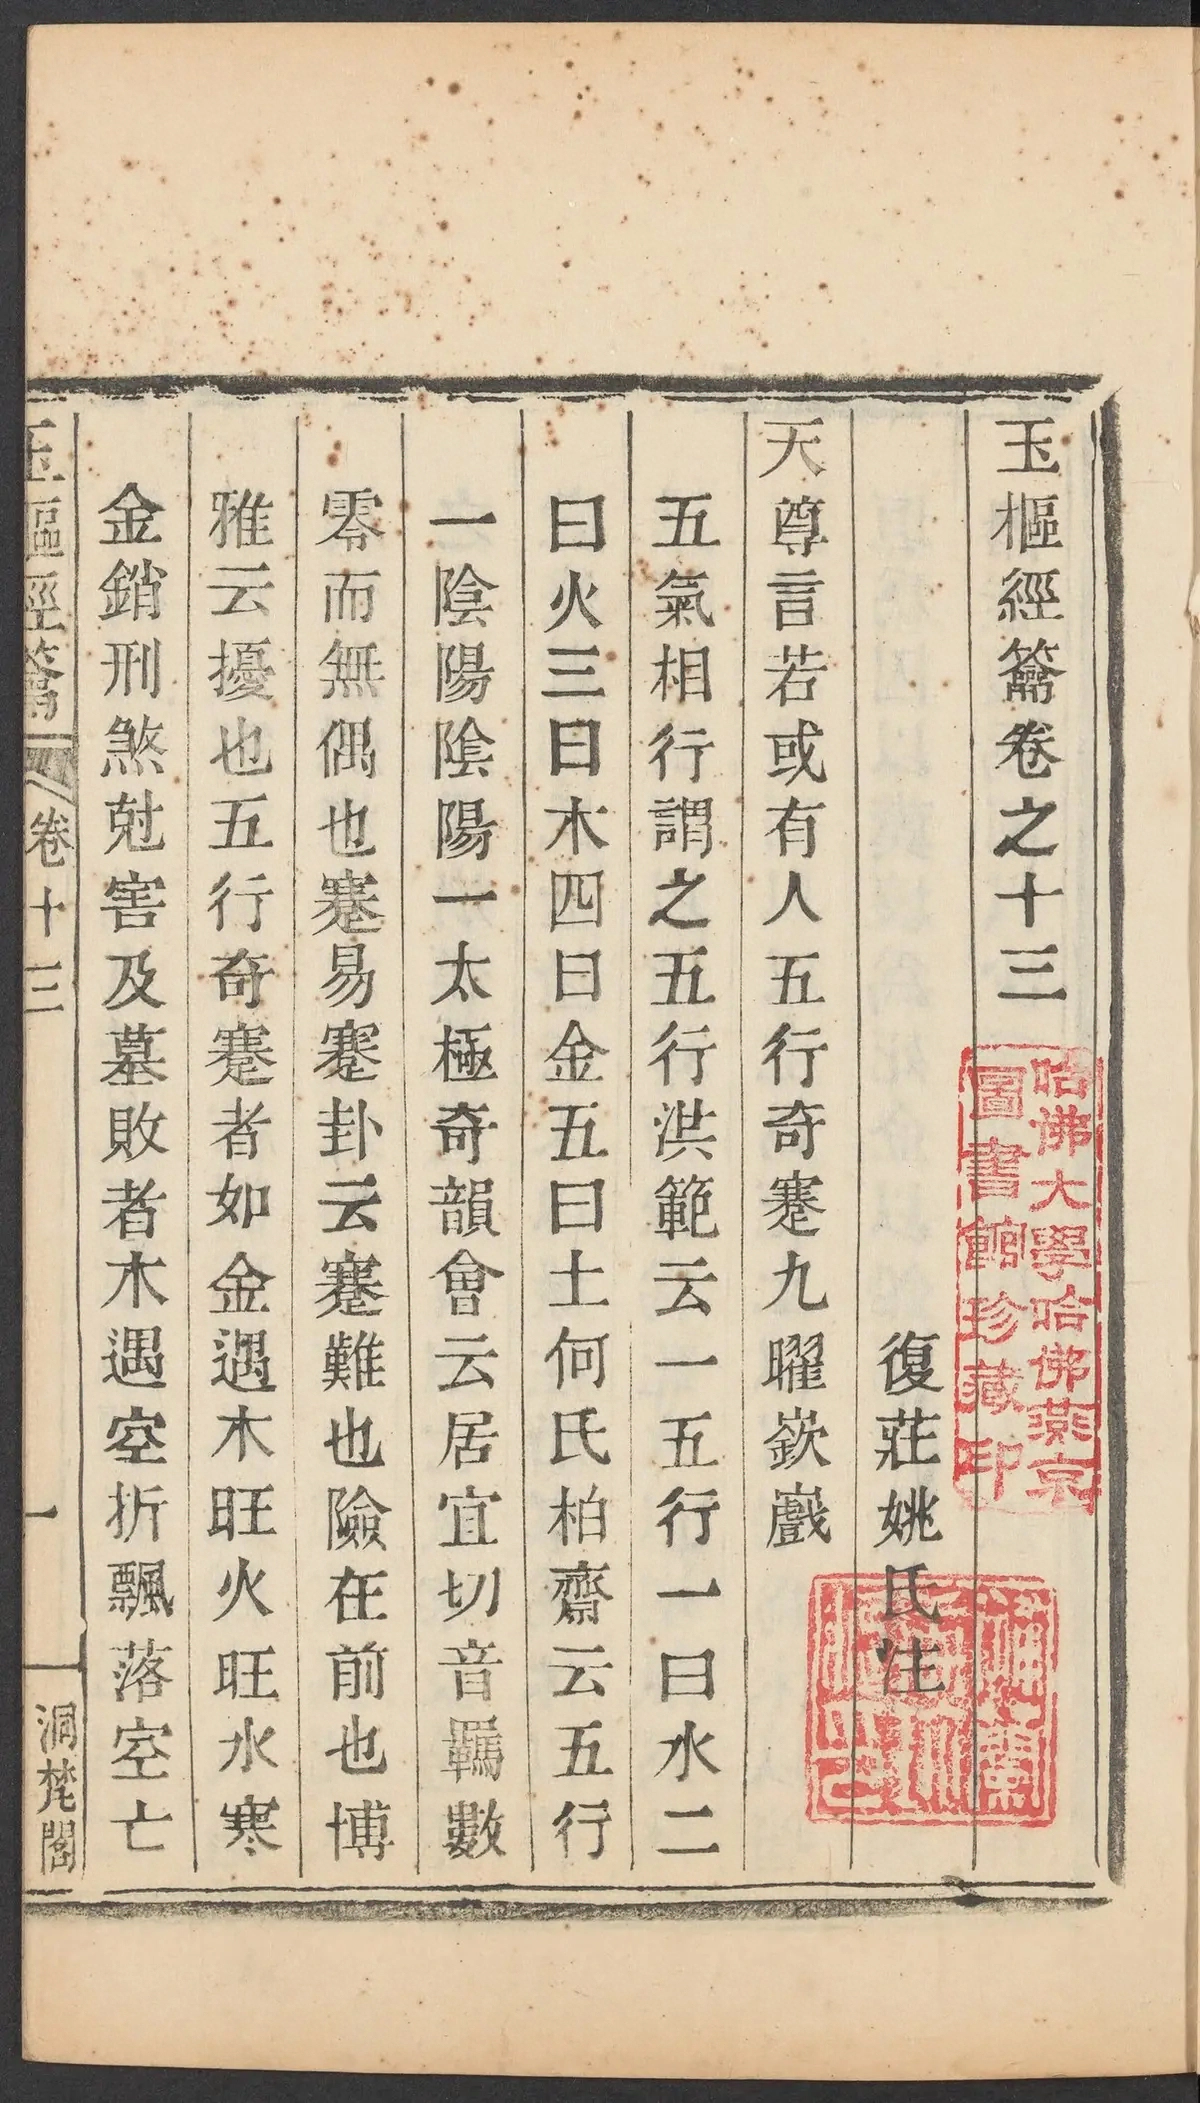 玉樞經籥卷之十三
復莊姚氏注
天尊言若或有人五行奇蹇九曜嶔巇
五氣相行謂之五行洪範云一五行一曰水二
曰火三曰木四曰金五曰土何氏柏齋云五行
一陰陽陰陽一太極奇韻會云居宜切音羈數
零而無偶也蹇易蹇卦云蹇難也險在前也博
雅云擾也五行奇蹇者如金遇木旺火旺水寒
金銷刑煞尅害及墓敗者木遇空折飄落空亡
玉樞經籥 卷十三 一 洞梵閣
哈佛大學哈佛燕京
圖書館珍藏印